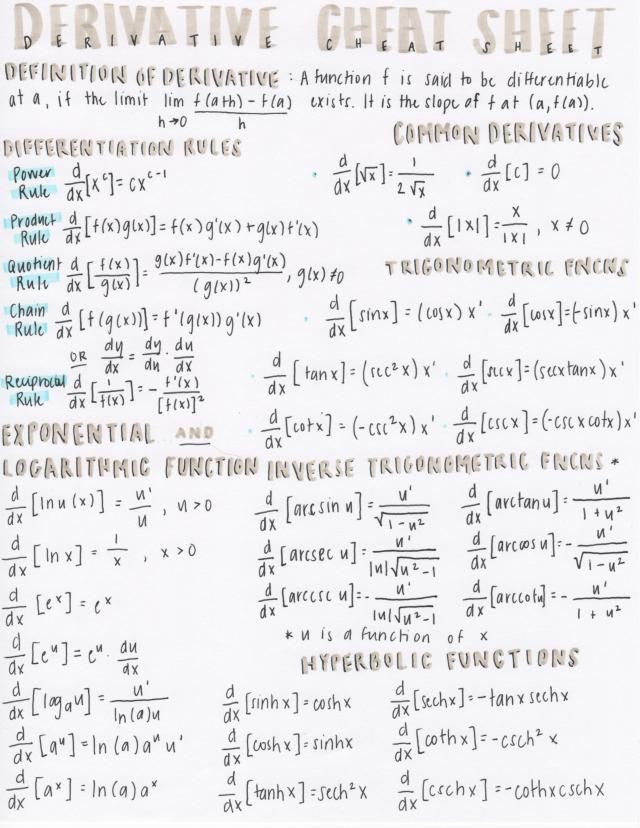 DERIVATIVE CHEAT SHEET
DERIVATIVE CHEAT SHEET
DEFINITION OF DERIVATIVE: A function f is said to be differentiable
at a, if the limit lim h→0 f(a+h) - f(a) / h exists. It is the slope of f at (a, f(a)).
DIFFERENTIATION RULES
Power Rule d/dx [x^c] = cx^(c-1)
Product Rule d/dx [f(x)g(x)] = f(x)g'(x) + g(x)f'(x)
Quotient Rule d/dx [f(x)/g(x)] = g(x)f'(x) - f(x)g'(x) / (g(x))², g(x) ≠ 0
Chain Rule d/dx [f(g(x))] = f'(g(x)) g'(x)
OR dy/dx = dy/du · du/dx
Reciprocal Rule d/dx [1/f(x)] = - f'(x)/[f(x)]²
COMMON DERIVATIVES
· d/dx [√x] = 1/2√x · d/dx [c] = 0
· d/dx [|x|] = x/|x|, x ≠ 0
TRIGONOMETRIC FNCNS
· d/dx [sinx] = (cosx) x' · d/dx [cosx] = (-sinx) x'
· d/dx [tanx] = (sec²x) x' · d/dx [secx] = (secxtanx) x'
· d/dx [cotx] = (-csc²x) x' · d/dx [cscx] = (-cscxcotx) x'
EXPONENTIAL AND
LOGARITHMIC FUNCTION
d/dx [ln u(x)] = u'/u, u > 0
d/dx [lnx] = 1/x, x > 0
d/dx [e^x] = e^x
d/dx [e^u] = e^u · du/dx
d/dx [log_a u] = u'/ln(a)u
d/dx [a^u] = ln(a) a^u u'
d/dx [a^x] = ln(a) a^x
INVERSE TRIGONOMETRIC FNCNS *
d/dx [arcsin u] = u'/√(1-u²) d/dx [arctan u] = u'/(1+u²)
d/dx [arcsec u] = u'/|u|√(u²-1) d/dx [arccos u] = - u'/√(1-u²)
d/dx [arccsc u] = - u'/|u|√(u²-1) d/dx [arccotu] = - u'/(1+u²)
* u is a function of x
HYPERBOLIC FUNCTIONS
d/dx [sinhx] = coshx d/dx [sechx] = -tanx sechx
d/dx [coshx] = sinhx d/dx [cothx] = -csch²x
d/dx [tanhx] = sech²x d/dx [cschx] = -cothxcschx